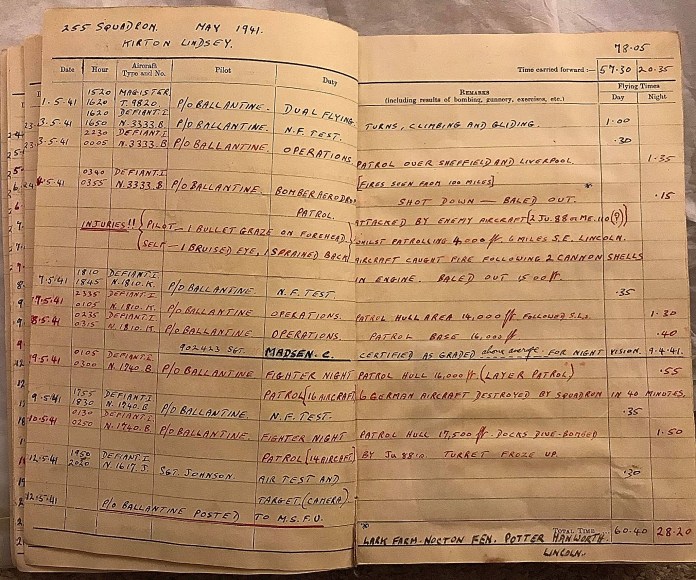 255 SQUADRON. MAY 1941.
KIRTON LINDSEY.
78.05
Time carried forward :— 57.30 20.35
Date Hour Aircraft Type and No. Pilot Duty REMARKS (including results of bombing, gunnery, exercises, etc.) Flying Times Day Night
1.5.41 1520 1620 MAGISTER. T.9820. P/O BALLANTINE. DUAL FLYING. TURNS, CLIMBING AND GLIDING. 1.00
3.5.41 1620 1650 DEFIANT.I N.3333.B. P/O BALLANTINE. N.F. TEST. .30
3.5.41 2230 0005 DEFIANT.I N.3333.B P/O BALLANTINE. OPERATIONS. PATROL OVER SHEFFIELD AND LIVERPOOL. 1.35
[FIRES SEEN FROM 100 MILES]
5.41 0340 0355 DEFIANT.I N.3333.B P/O BALLANTINE. BOMBER AERODROME PATROL. SHOT DOWN — BALED OUT. * .15
ATTACKED BY ENEMY AIRCRAFT (2 JU.88 OR ME.110 (?))
INJURIES!! { PILOT — 1 BULLET GRAZE ON FOREHEAD } WHILST PATROLLING 4,000 ft. 6 MILES S.E. LINCOLN.
{ SELF — 1 BRUISED EYE, 1 SPRAINED BACK } AIRCRAFT CAUGHT FIRE FOLLOWING 2 CANNON SHELLS
IN ENGINE. BALED OUT 1500 ft.
7.5.41 1810 1845 DEFIANT.I N.1810.K. P/O BALLANTINE. N.F. TEST. .35
7.5.41 2335 0105 DEFIANT.I N.1810.K P/O BALLANTINE. OPERATIONS. PATROL HULL AREA 14,000 ft FOLLOWED S.Ls. 1.30
8.5.41 0235 0315 DEFIANT.I N.1810.K P/O BALLANTINE OPERATIONS. PATROL BASE 16,000 ft .40
902423 SGT. MADSEN. C. CERTIFIED AS GRADED above average FOR NIGHT VISION. 9.4.41.
9.5.41 0105 0300 DEFIANT.I. N.1740.B. P/O BALLANTINE. FIGHTER NIGHT PATROL [16 AIRCRAFT] PATROL HULL 16,000 ft (LAYER PATROL) .55
6 GERMAN AIRCRAFT DESTROYED BY SQUADRON IN 40 MINUTES.
9.5.41 1755 1830 DEFIANT.I N.1740.B P/O BALLANTINE. N.F. TEST. .35
10.5.41 0130 0250 DEFIANT.I N.1740.B. P/O BALLANTINE. FIGHTER NIGHT PATROL [14 AIRCRAFT] PATROL HULL 17,500 ft. DOCKS DIVE-BOMBED 1.50
BY JU 88's. TURRET FROZE UP.
12.5.41 1950 2020 DEFIANT.I N.1617.J. SGT. JOHNSON. AIR TEST AND TARGET (CAMERA). .30
12.5.41 P/O BALLANTINE POSTED TO M.S.F.U.
TOTAL TIME 60.40 28.20
* LARK FARM-NOCTON FEN. POTTER HANWORTH.
LINCOLN.